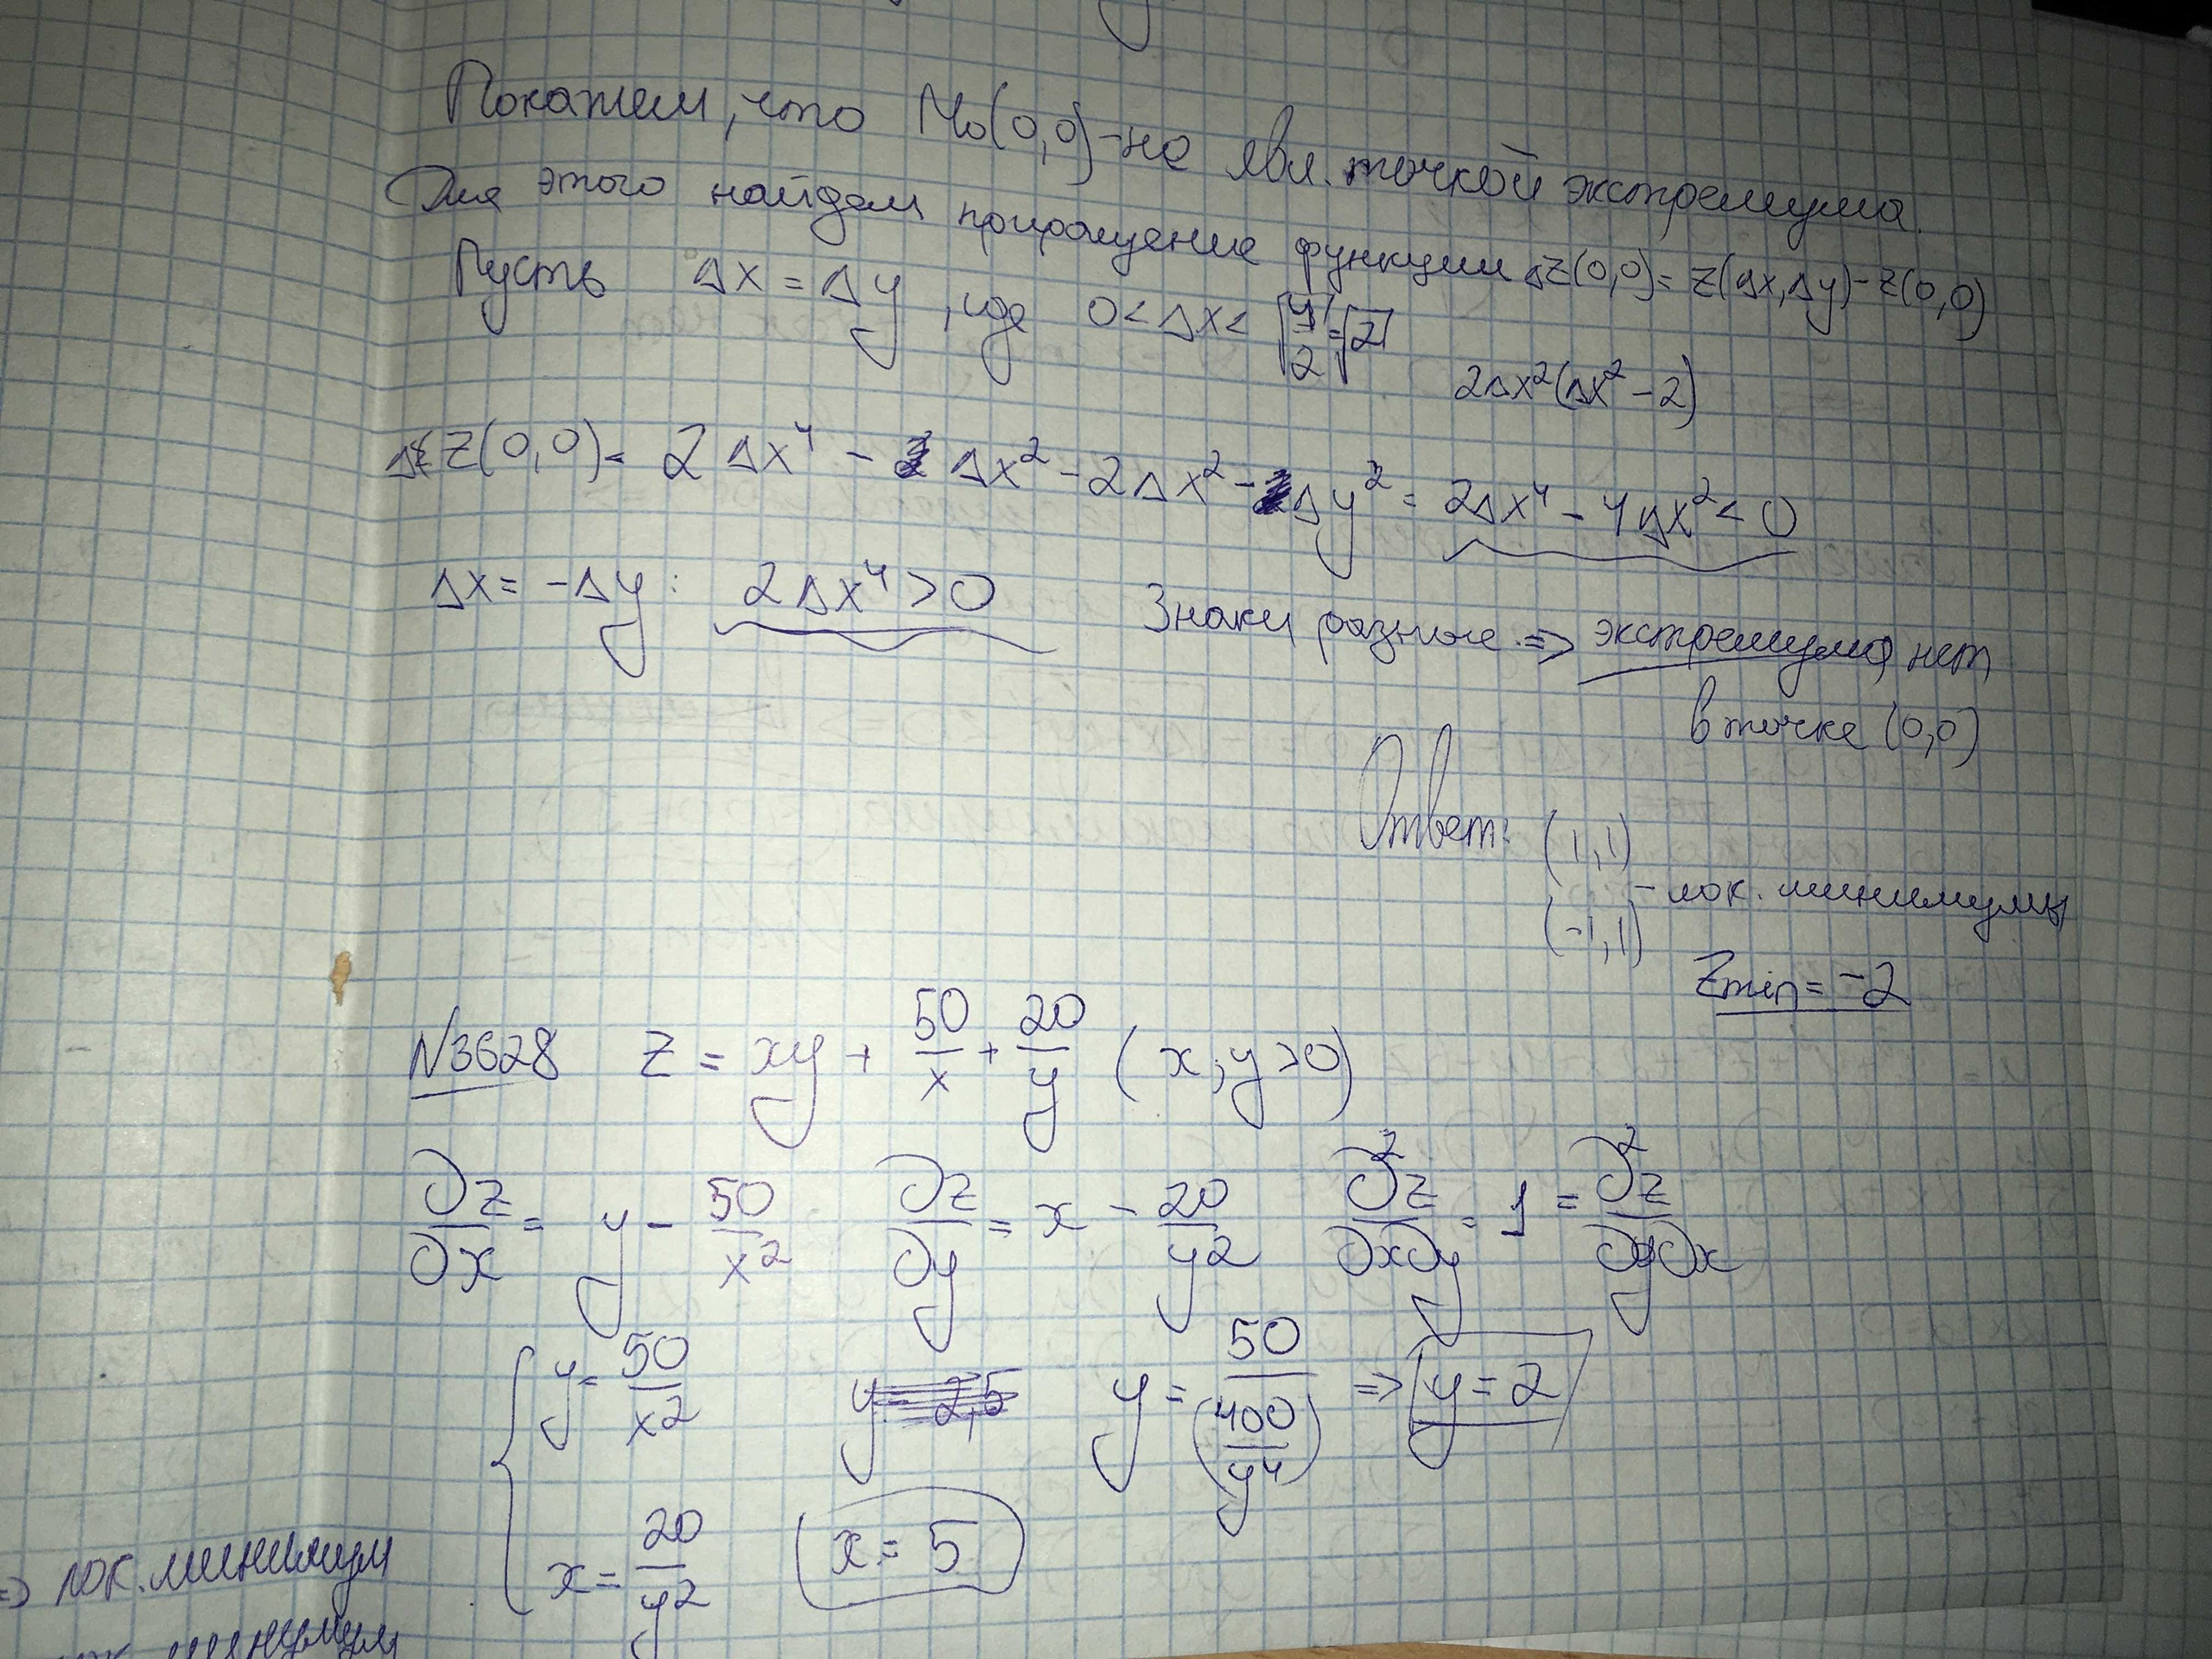 Покажем, что M₀(0,0) - не явл. точкой экстремума.
Для этого найдем приращение функции ΔZ(0,0) = Z(Δx, Δy) - Z(0,0)
Пусть Δx = Δy, где 0 < Δx < √(4/2) = √2
2Δx²(Δx² - 2)
ΔZ(0,0) = 2Δx⁴ - Δx² - 2Δx² - Δy² = 2Δx⁴ - 4Δx² < 0
Δx = -Δy : 2Δx⁴ > 0 Знаки разные => экстремума нет
в точке (0,0)
Ответ: (1,1)
(-1,1) - лок. минимумы
Zmin = -2
N3628 z = xy + 50/x + 20/y (x; y > 0)
∂z/∂x = y - 50/x² ∂z/∂y = x - 20/y² ∂²z/∂x∂y = 1 = ∂²z/∂y∂x
{ y = 50/x² y = 2,5 y = 50/(400/y⁴) => y = 2
x = 20/y² x = 5
=> лок. минимум
минимум